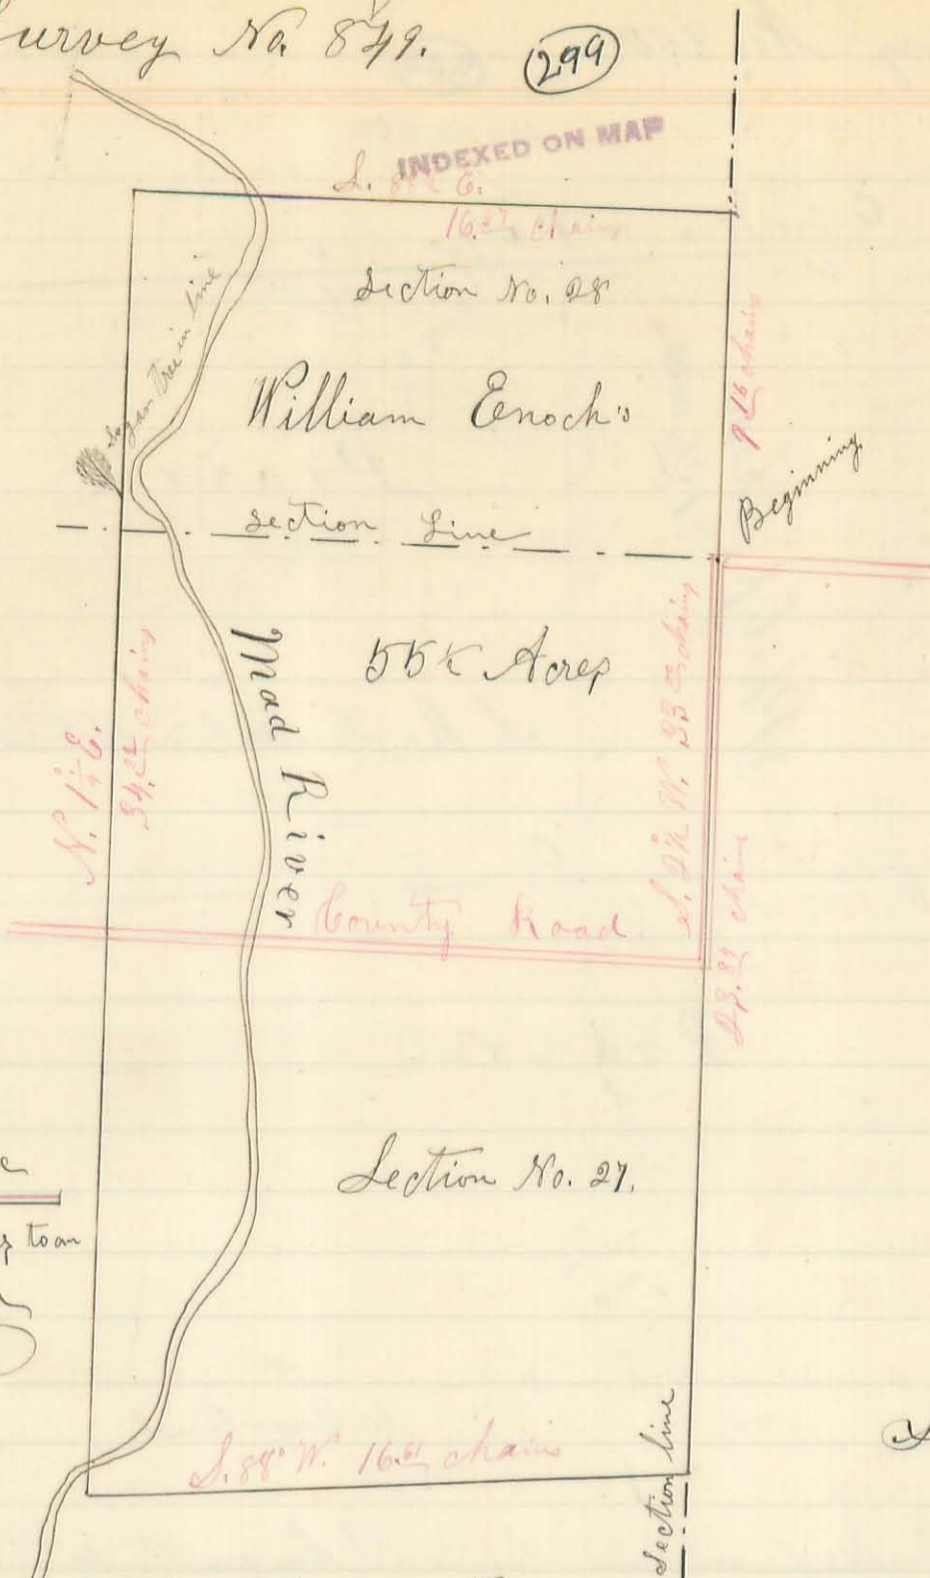 Survey No. 849.
299
INDEXED ON MAP
S. 88 E.
16.57 chains
Section No. 28
tree in line
9 16 chains
William Enoch's
Beginning
Section Line
55½ Acres
Mad River
N. 1¼° E.
34. chains
S. 2½° W. 33 chains
County Road
23.84 chains
Section No. 27.
to an
S. 88° W. 16.61 chains
Section line